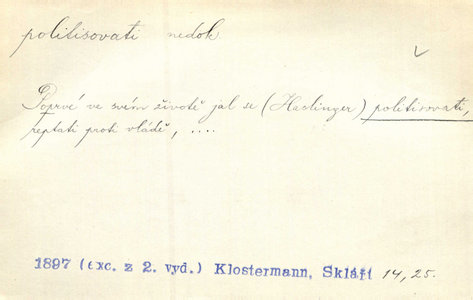 politisovati nedok.
Poprvé ve svém životě jal se (Haslinger) politisovati,
reptati proti vládě, ....
1897 (exc. z 2. vyd.) Klostermann, Skláři 14, 25.